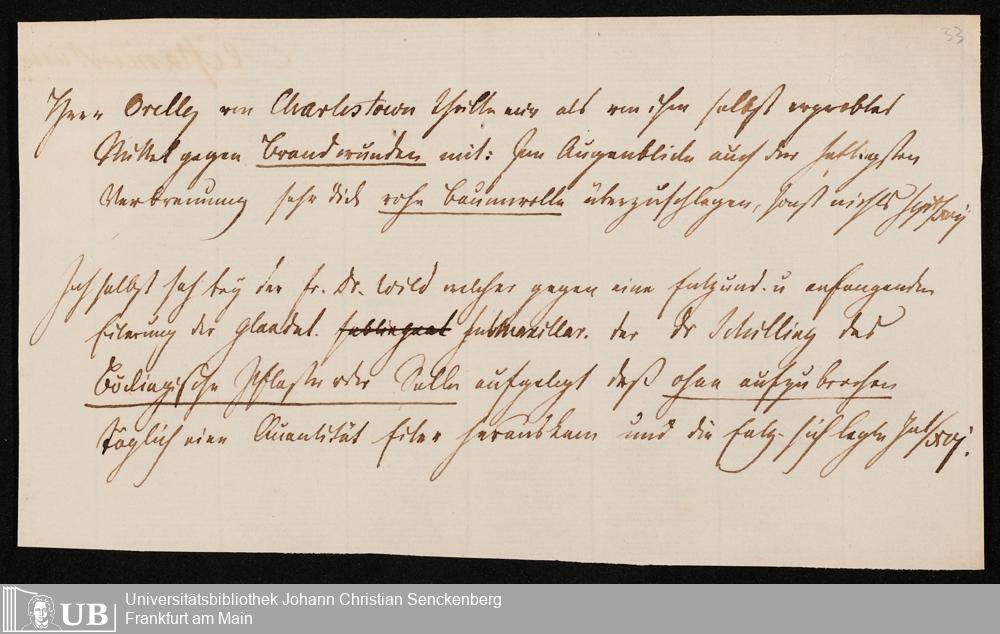 33
Herr Orelly von Charlestown theilte mir als von ihm selbst erprobtes
Mittel gegen Brandwunden mit: Im Augenblicke auch der heftigsten
Verbrennung sehr dick rohe Baumwolle überzuschlagen, sonst nichts
Ich selbst sah bey der Fr. Dr. Wild welcher gegen eine Entzünd. u anfangende
Eiterung der Glandul. submaxillar. der Dr Schilling das
Pflaster oder Salbe aufgelegt daß ohne aufzubrechen
täglich eine Quantität Eiter herauskam und die Entz. sich legte
UB
Universitätsbibliothek Johann Christian Senckenberg
Frankfurt am Main